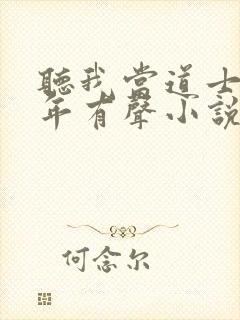 聽我當道士
年有聲小說
何念尔